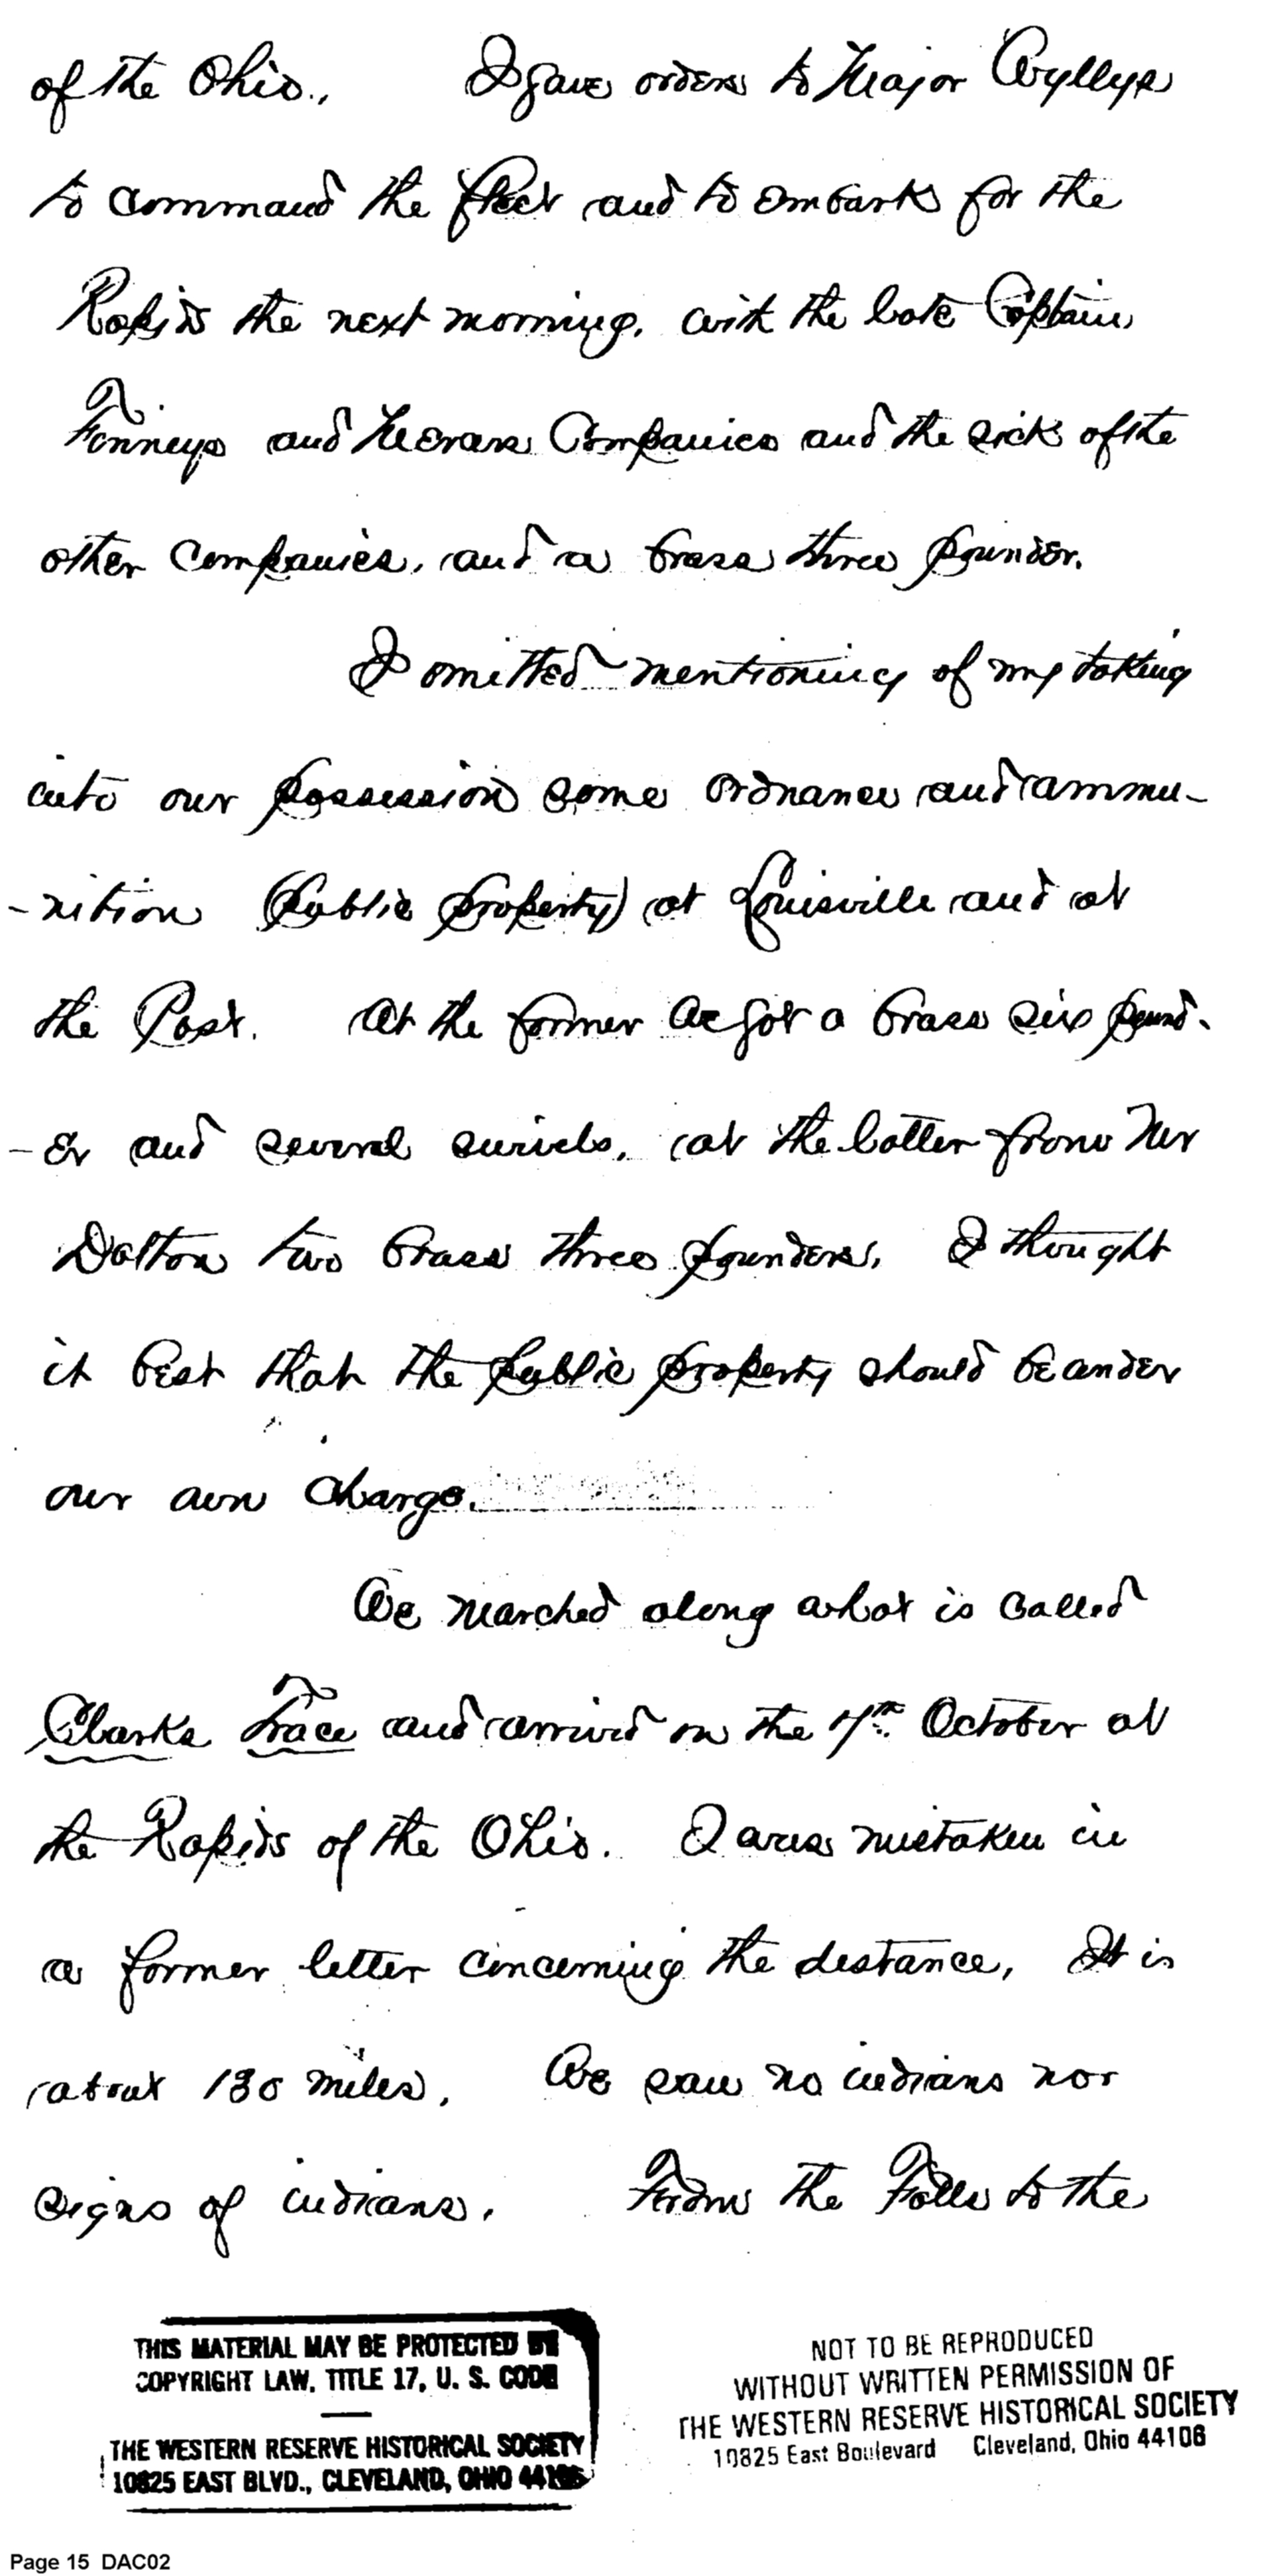 of the Ohio., I gave orders to Major Wyllys
to command the fleet and to embark for the
Rapids the next morning, with the late Captain
Finneys and Mercers Companies and the sick of the
other Companies, and a brass three pounder.
I omitted mentioning of my taking
into our possession some ordnance and ammu-
-nition (public property) at Louisville and at
the Post. At the former we got a brass six pound-
-er and several swivels, at the latter from Mr
Dalton two brass three pounders, I thought
it best that the public property should be under
our own charge.
We marched along what is called
Clarks Trace and arrived on the 7th October at
the Rapids of the Ohio. I was mistaken in
a former letter concerning the distance, It is
about 130 miles. We saw no indians nor
signs of indians. From the Falls to the
THIS MATERIAL MAY BE PROTECTED BY
COPYRIGHT LAW, TITLE 17, U. S. CODE
THE WESTERN RESERVE HISTORICAL SOCIETY
10825 EAST BLVD., CLEVELAND, OHIO 44106
NOT TO BE REPRODUCED
WITHOUT WRITTEN PERMISSION OF
THE WESTERN RESERVE HISTORICAL SOCIETY
10825 East Boulevard Cleveland, Ohio 44106
Page 15 DAC02